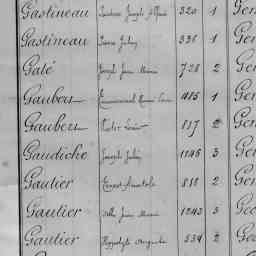 Gastineau Joseph Alfred 320 1 Gen
Gastineau Pierre Julien 338 1 Gen
Gaté Joseph Jean Marie 728 2 Gen
Gaubert 1185 1 Gen
Gaubert Victor Louis 817 2 Gen
Gaudiche Joseph Julien 1146 3 Gen
Gautier Ernest Anatole 818 2 Gen
Gautier Jean Marie 1243 3 Geo
Gautier Hippolyte Auguste 534 2 Geo